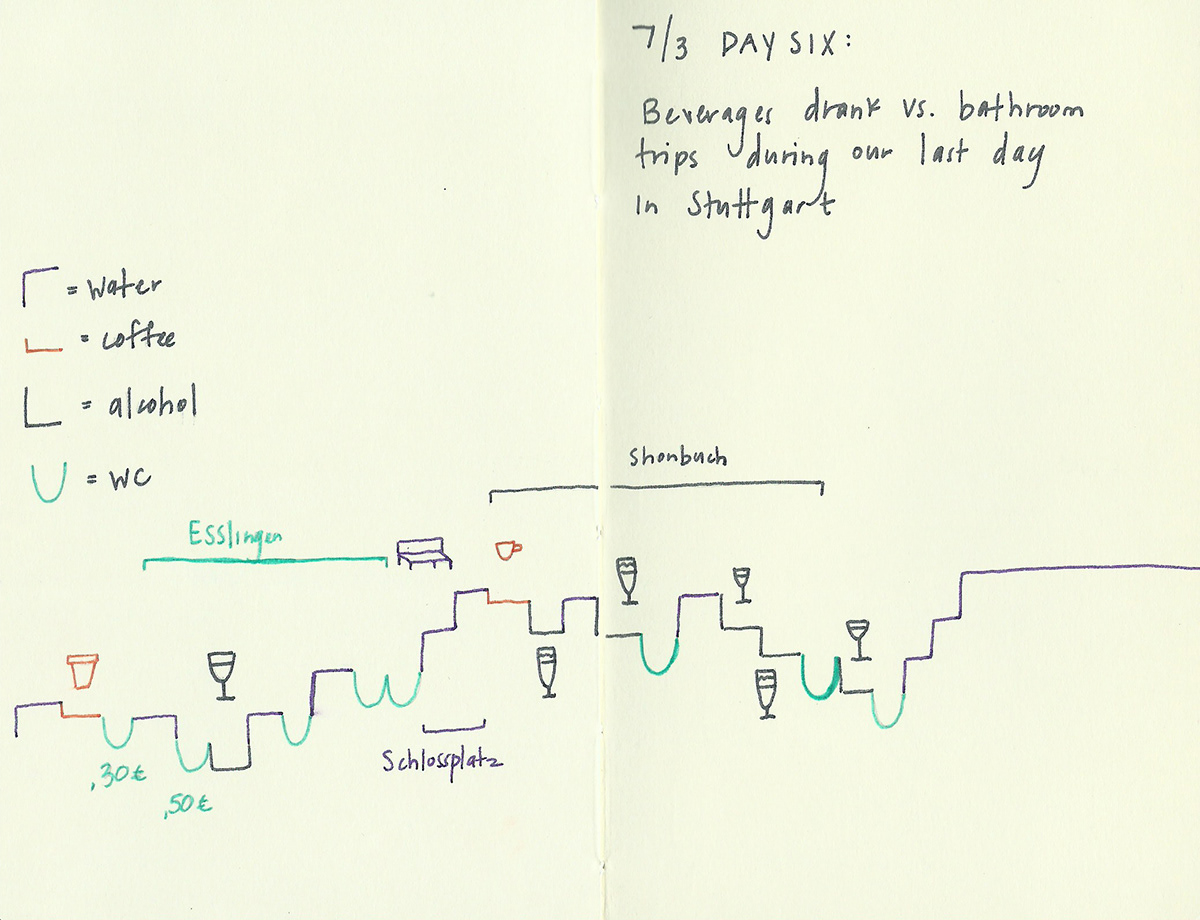 7/3 DAY SIX:
Beverages drank vs. bathroom
trips during our last day
in Stuttgart
= water
= coffee
= alcohol
= WC
Shonbuch
Esslingen
Schlossplatz
,30€
,50€